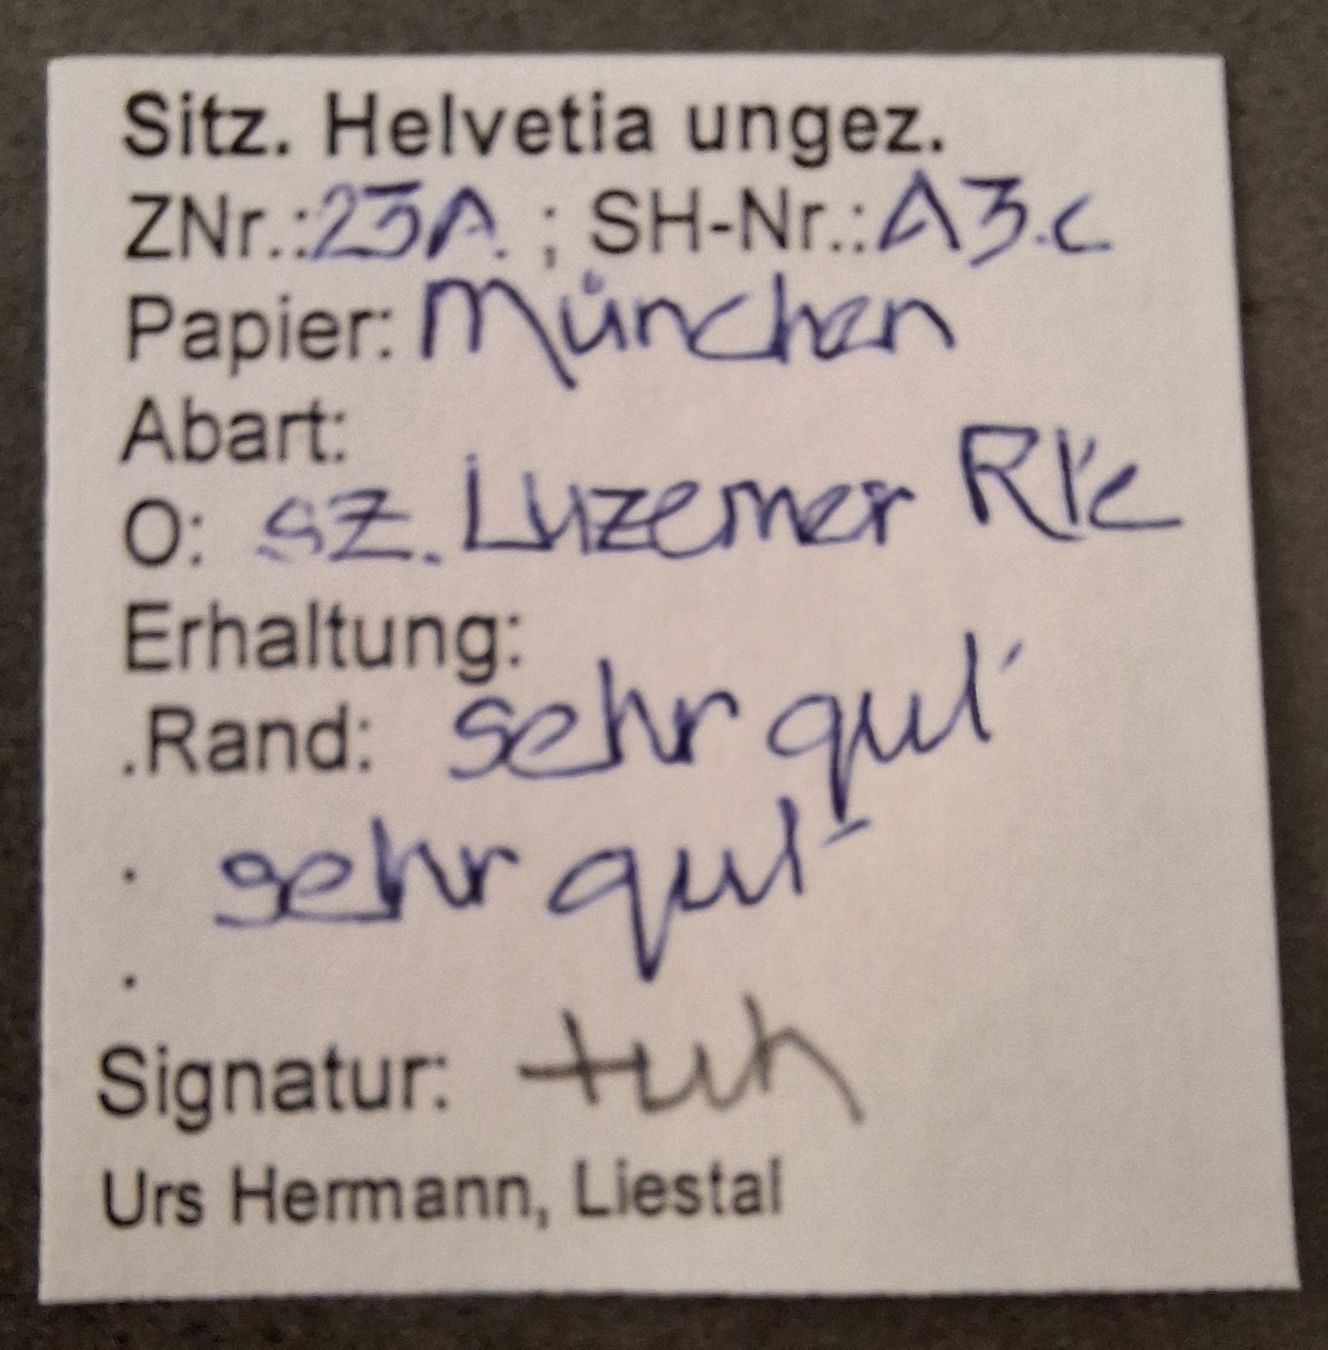 Sitz. Helvetia ungez.
ZNr.: 23A. ; SH-Nr.: A3.c
Papier: München
Abart:
O: sz. Luzerner
Erhaltung:
.Rand: sehr gut
. sehr gut
.
Signatur:
Urs Hermann, Liestal